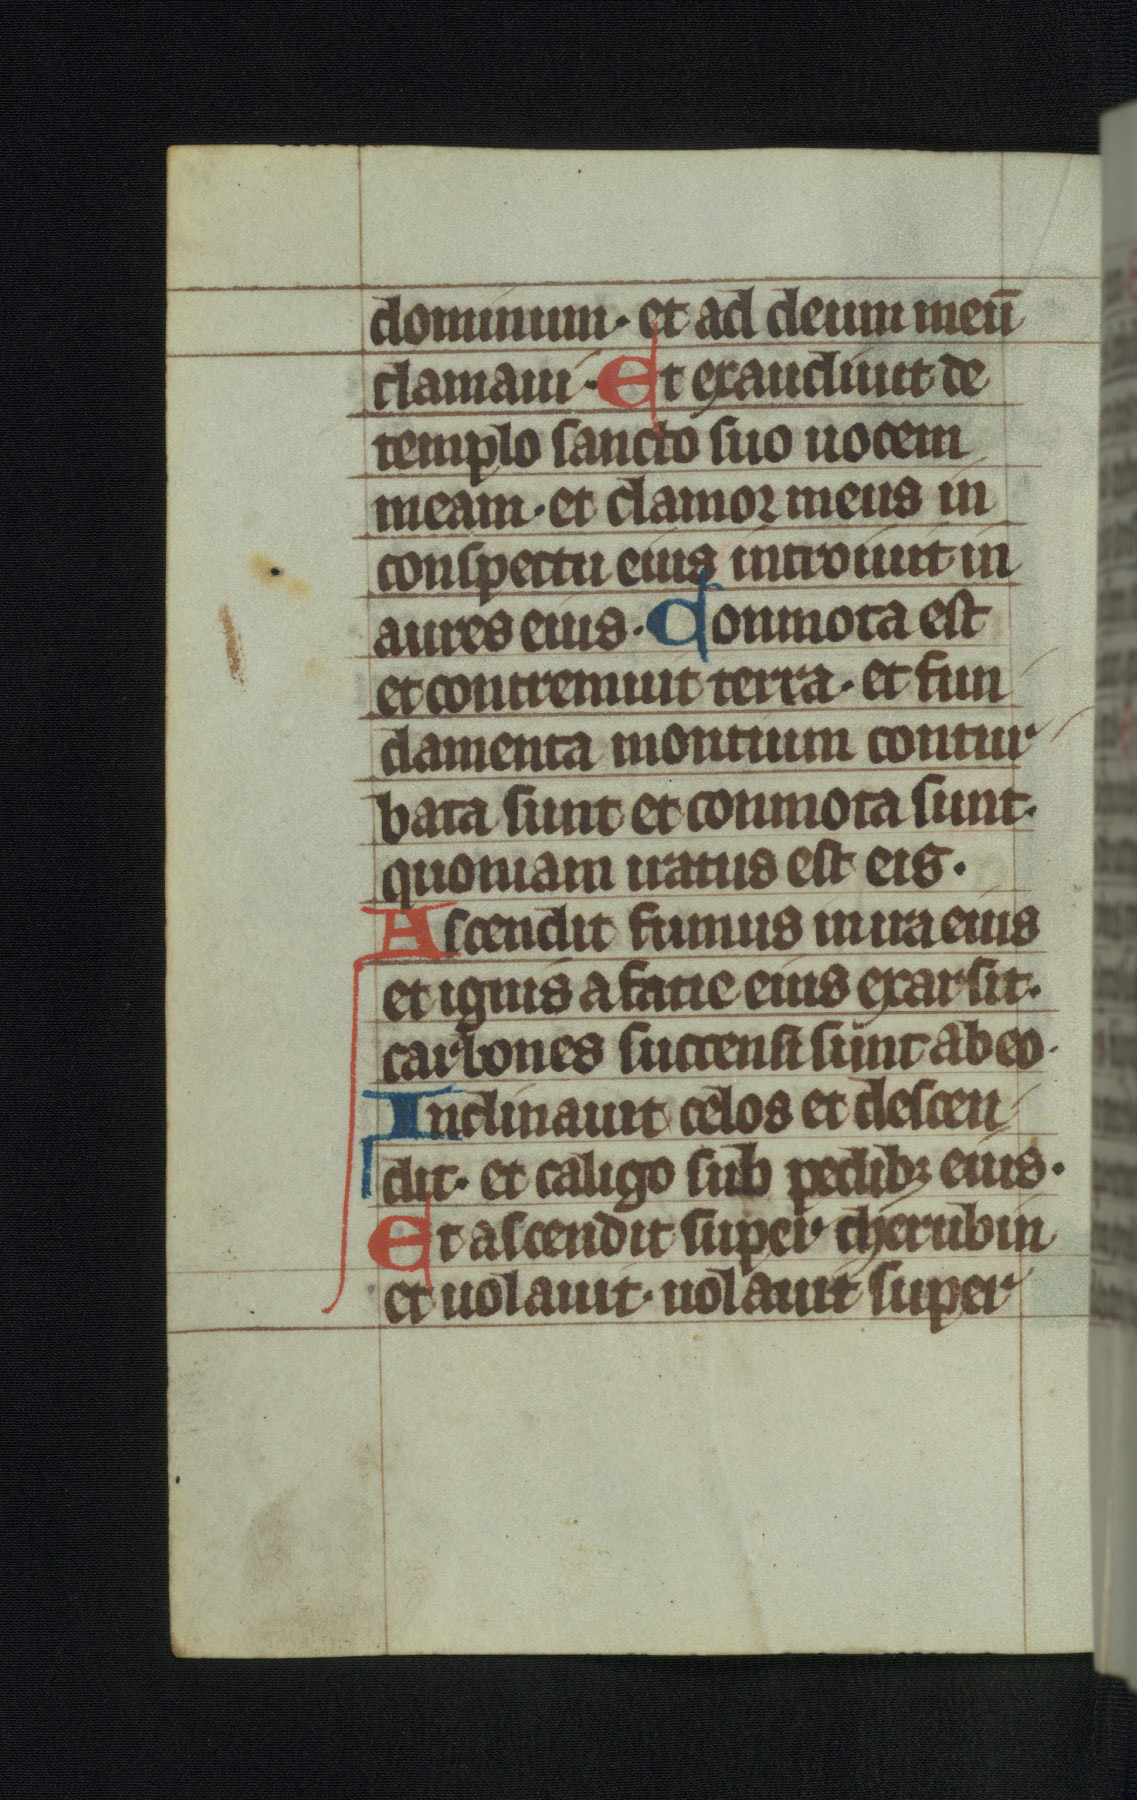 dominum· et ad deum meū
clamaui· Et exaudiuit de
templo sancto suo uocem
meam· et clamor meus in
conspectu eius introiuit in
aures eius· Conmota est
et contremuit terra· et fun
damenta montium contur
bata sunt et conmota sunt·
quoniam iratus est eis·
Ascendit fumus in ira eius
et ignis a facie eius exarsit·
carbones succensi sunt ab eo·
Inclinauit celos et descen
dit· et caligo sub pedibꝫ eius·
Et ascendit super cherubin
et uolauit· uolauit super